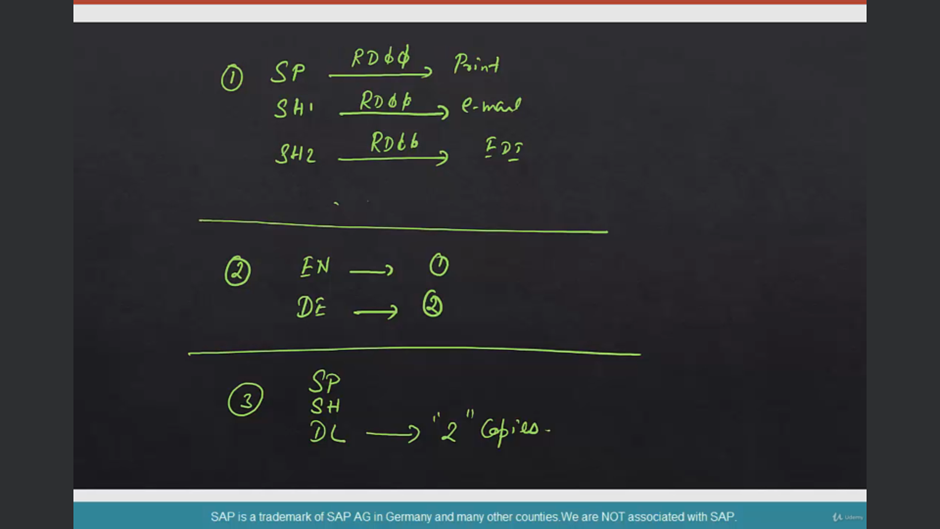 ① SP → RD00 Print
SH1 → RD00 e-mail
SH2 → RD00 EDI
② EN → ①
DE → ②
③ SP
SH
DL → "2" Copies.
SAP is a trademark of SAP AG in Germany and many other counties.We are NOT associated with SAP.
Udemy